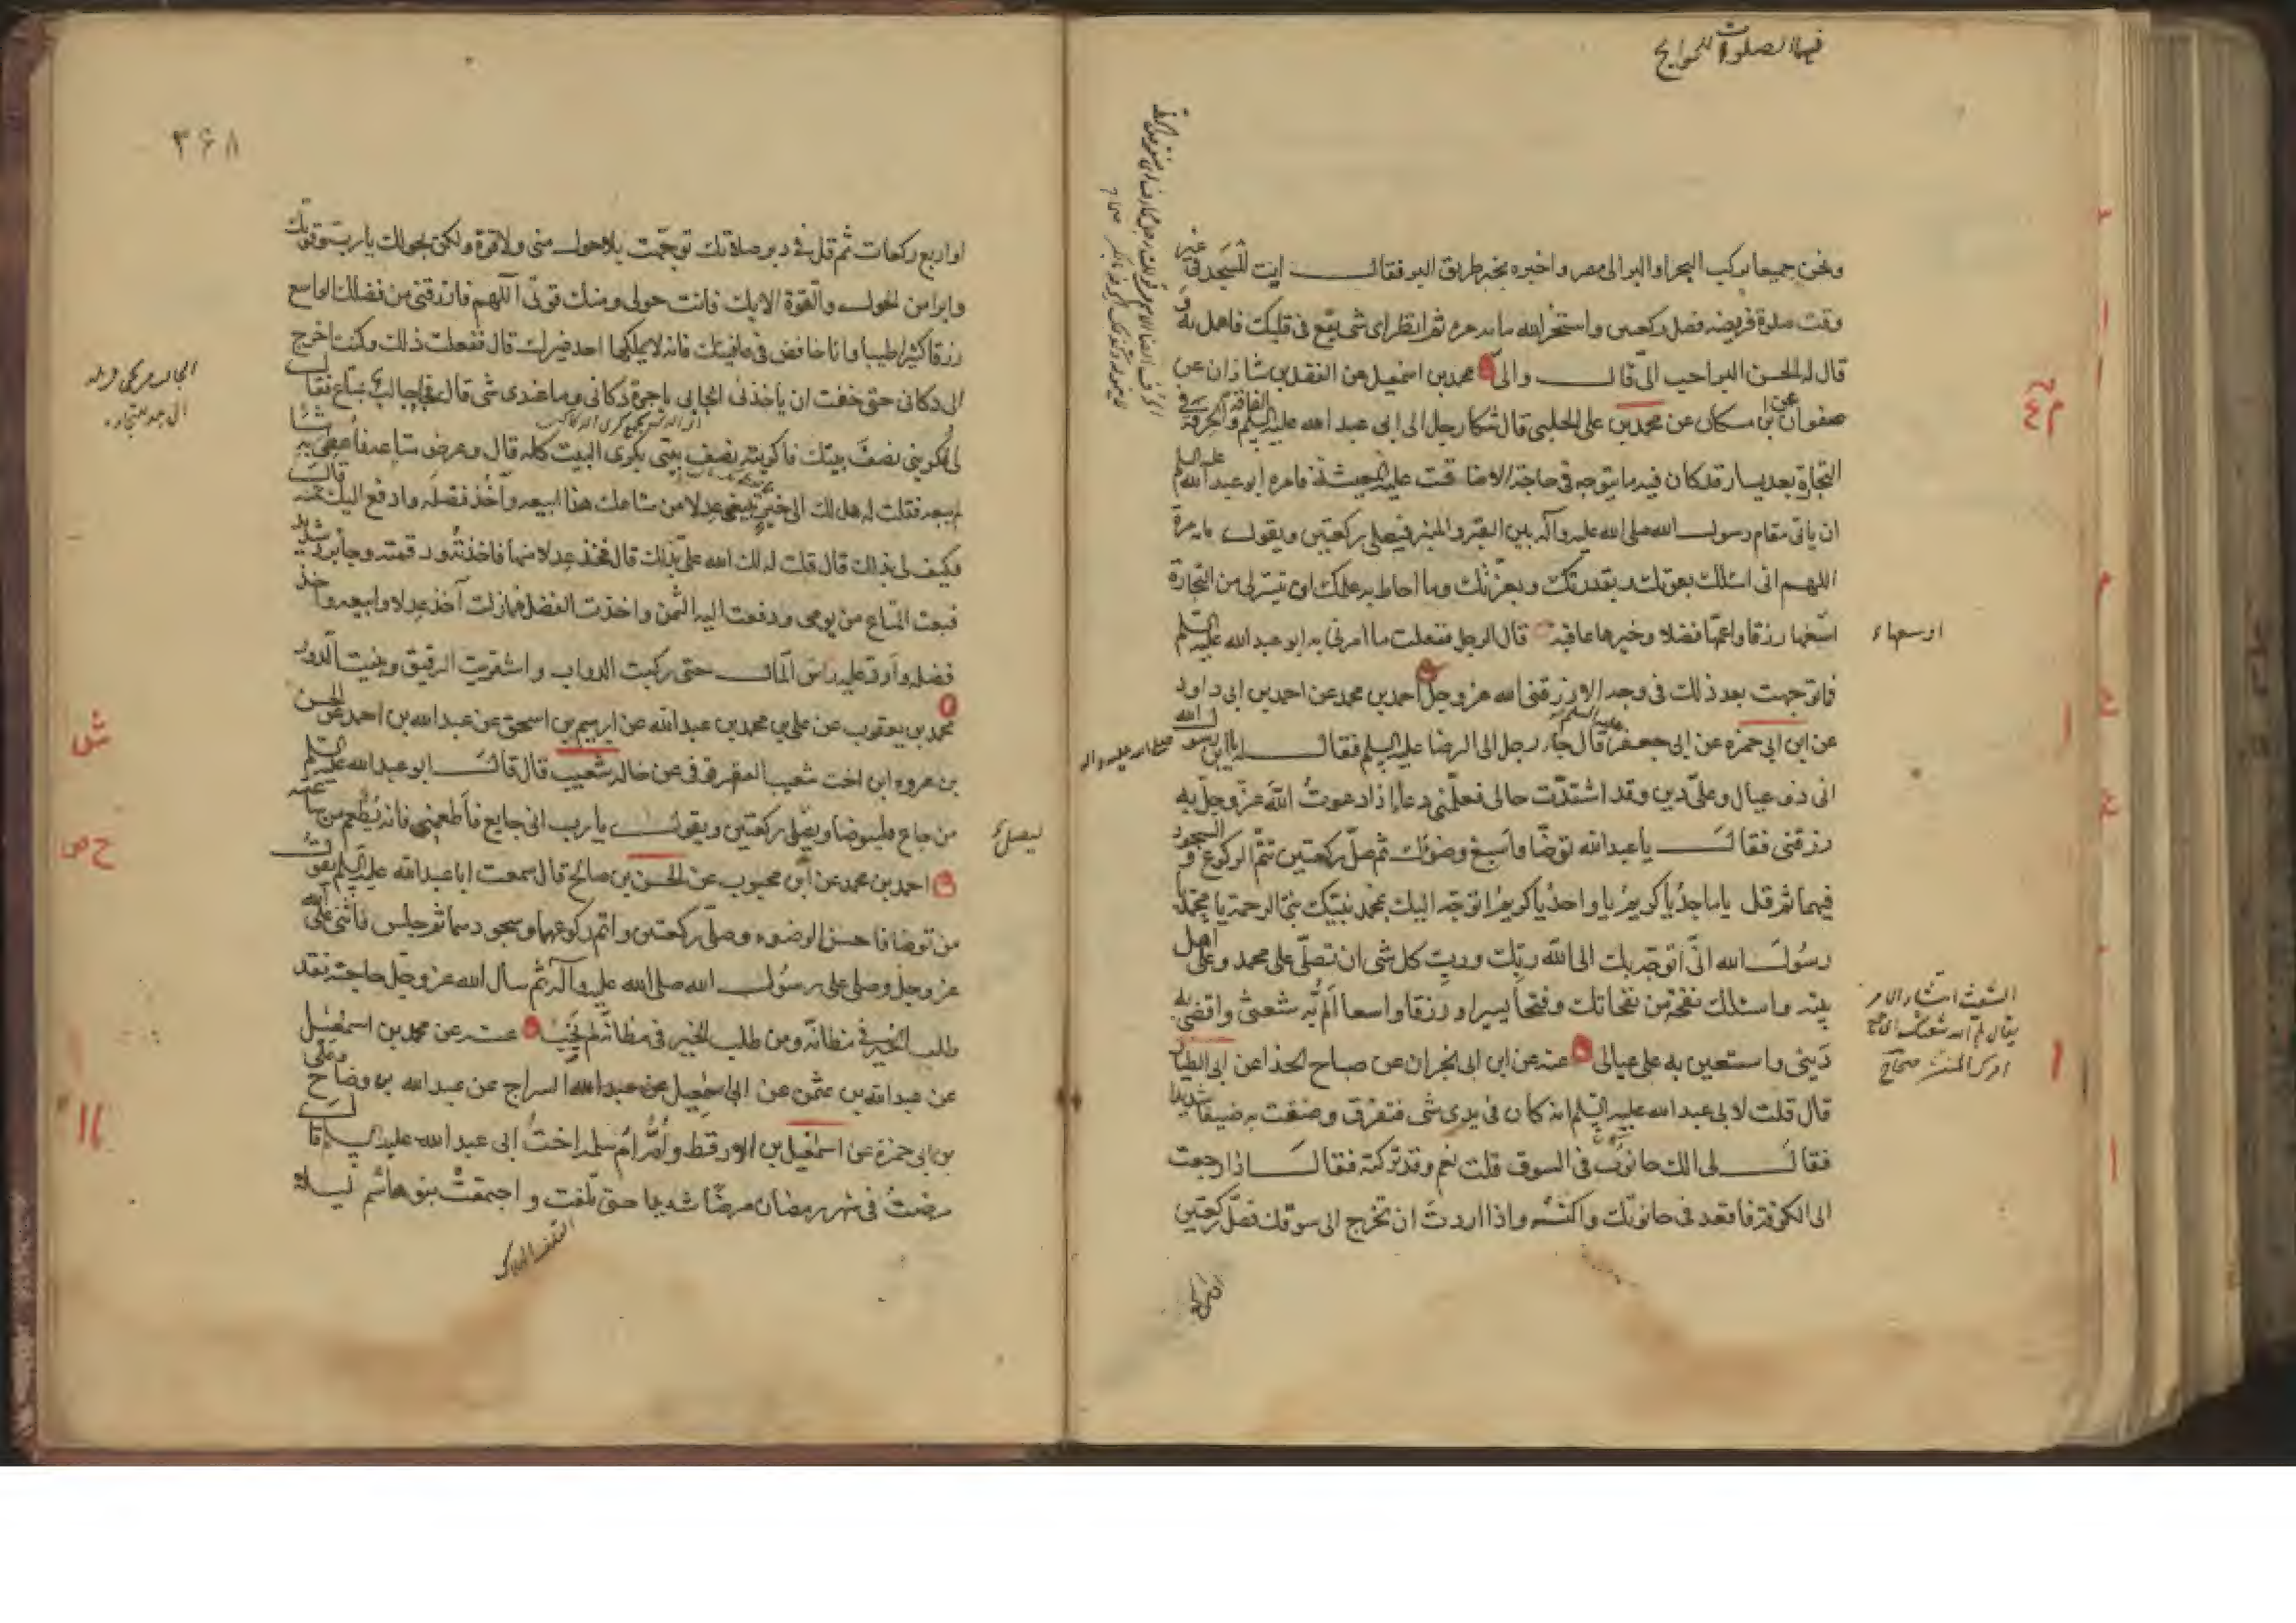 فيها الصلوات للحوايج
ونحن جميعا نركب البحر او البر الى مصر واخبره بخبر طريق البر فقال ايت المسجد فى غير
وقت صلوة فريضه فصل ركعتين واستخر الله مايه مره ثم انظر اى شى يقع فى قلبك فاعمل به و
قال له الحسن البر احب الىّ قال والىّ محمد بن اسمعيل عن الفضل بن شاذان عن
صفوان عن ابن مسكان عن محمد بن على الحلبى قال شكا رجل الى ابى عبد الله عليه السلم الفاقة والحرفة فى
التجارة بعد يسار قد كان فيه ما يتوجه فى حاجة الا ضاقت عليه المعيشة فامره ابو عبد الله عليه السلم
ان ياتى مقام رسول الله صلى الله عليه وآله بين القبر والمنبر فيصلى ركعتين ويقول مايه مرة
اللهم انى اسئلك بقوتك و بقدرتك و بعزتك وما احاط به علمك ان تيسر لى من التجارة
اسبغها رزقا واعمها فضلا وخيرها عاقبة قال الرجل ففعلت ما امرنى به ابو عبد الله عليه السلم
اوسعها
فما توجهت بعد ذلك فى وجه الا رزقنى الله عز وجل احمد بن محمد عن احمد بن ابى داود
عن ابن ابى حمزه عن ابى جعفر عليه السلم قال جاء رجل الى الرضا عليه السلم فقال له يا ابن رسول الله
صلى الله عليه واله
انى ذو عيال وعلىّ دين وقد اشتدّت حالى فعلّمنى دعاء اذا دعوتُ الله عزّ وجلّ به
رزقنى فقال يا عبد الله توضّا واسبغ وضوئك ثم صلّ ركعتين تتمّ الركوع و السجود
فيهما ثم قل يا ماجدُ يا كريمُ يا واحدُ يا كريمُ اتوجّه اليك بمحمد نبيّك نبىّ الرحمة يا محمد
رسُول الله انّى اتوجّه بك الى الله ربّك وربّ كل شى ان تصلّى على محمد وعلى اهل
بيته واسئلك نفحة من نفحاتك وفتحا يسيرا و رزقا واسعا المّ به شعثى واقضى به
الشعث انتشار الامر
يقال لم الله شعثك اى جمع
امرك المنتشر صحاح
دَينى واستعين به على عيالى عنه عن ابن ابى نجران عن صباح الحذا عن ابى الطيار
قال قلت لابى عبد الله عليه السلم انه كان فى يدى شى فتفرّق و ضقت به ضيقا شديدا
فقال لى الك حانوت فى السوق قلت نعم وقد تركته فقال اذا رجعت
الى الكوفة فاقعد فى حانوتك واكنسه واذا اردت ان تخرج الى سوقك فصلّ ركعتين
۳۶۸
او اربع ركعات ثم قل فى دبر صلاتك توجّهت بلا حول منى ولا قوة ولكن بحولك يا رب وقوتك
وابرا من الحول والقوة الا بك فانت حولى ومنك قوتى اللهم فارزقنى من فضلك الواسع
رزقا كثيرا طيبا وانا خافض فى عافيتك فانه لا يملكها احد غيرك قال ففعلت ذلك وكنت اخرج
الى دكانى حتى خفت ان ياخذنى الجابى باجرة دكانى وما عندى شى قال فجا جالب بمتاع فقال
لى تكرينى نصف بيتك فاكريته نصف بيتى بكرى البيت كله قال وعرض متاعه فاعطى به شيئا
لم يبعه فقلت له هل لك الى خير تبيعنى عدلا من متاعك هذا ابيعه وآخذ فضله وادفع اليك ثمنه قال
وكيف لى بذلك قال قلت له لك الله علىّ بذلك قال فخذ عدلا منها فاخذته ورقمته وجا برد شديد
فبعت المتاع من يومى ودفعت اليه الثمن واخذت الفضل فما زلت آخذ عدلا وابيعه وآخذ
فضله وارد عليه راس المال حتى ركبت الدواب واشتريت الرقيق وبنيت الدور
محمد بن يعقوب عن على بن محمد بن عبد الله عن ابرهيم بن اسحق عن عبد الله بن احمد عن الحسن
بن عروه ابن اخت شعيب العقرقوفى عن خاله شعيب قال قال ابو عبد الله عليه السلم
من جاع فليتوضا ويصلى ركعتين ويقول يا رب انى جايع فاطعمنى فانه يُطعم من ساعته
ليصل
احمد بن محمد عن ابن محبوب عن الحسن بن صالح قال سمعت ابا عبد الله عليه السلم يقول
من توضا فاحسن الوضوء وصلى ركعتين واتم ركوعها وسجودها ثم جلس فاثنى على الله
عز وجل وصلى على رسُول الله صلى الله عليه وآله ثم سال الله عز وجل حاجته فقد
طلب الخير فى مظانّه ومن طلب الخير فى مظانّه لم يَخِب عنه عن محمد بن اسمعيل
عن عبد الله بن عثمن عن ابى اسمعيل عن عبد الله السراج عن عبد الله بن وضاح وعلى
بن ابى حمزة عن اسمعيل بن الارقط وامّه امّ سلمه اخت ابى عبد الله عليه السلم قال
مرضتُ فى شهر رمضان مرضًا شديدا حتى تلفت و اجتمعت بنو هاشم ليلا
التلف الهلاك